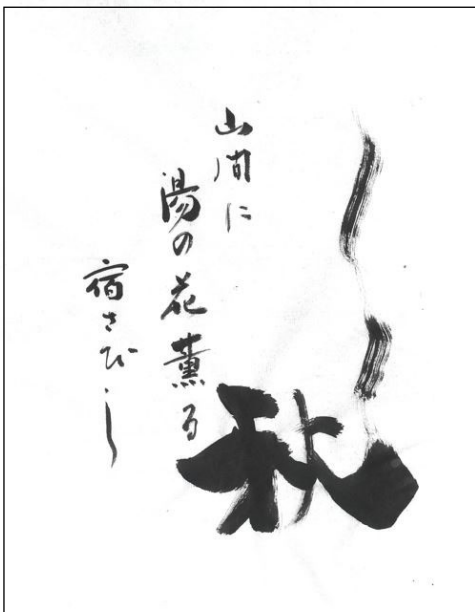 秋
山間に
湯の花薫る
宿さびし